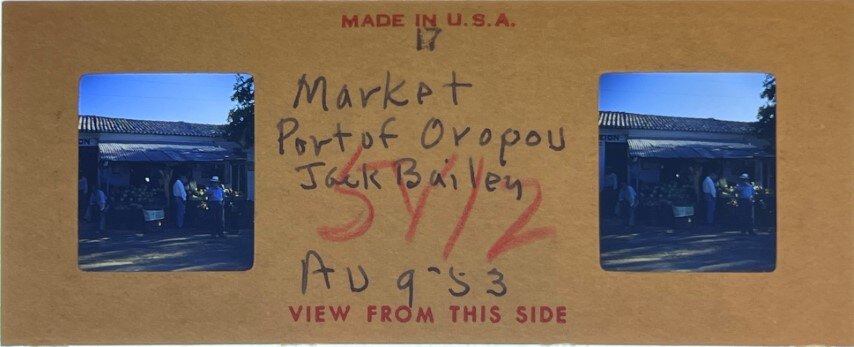 MADE IN U.S.A.
17
Market
Port of Oropou
Jack Bailey
5Y12
AU 9-53
VIEW FROM THIS SIDE